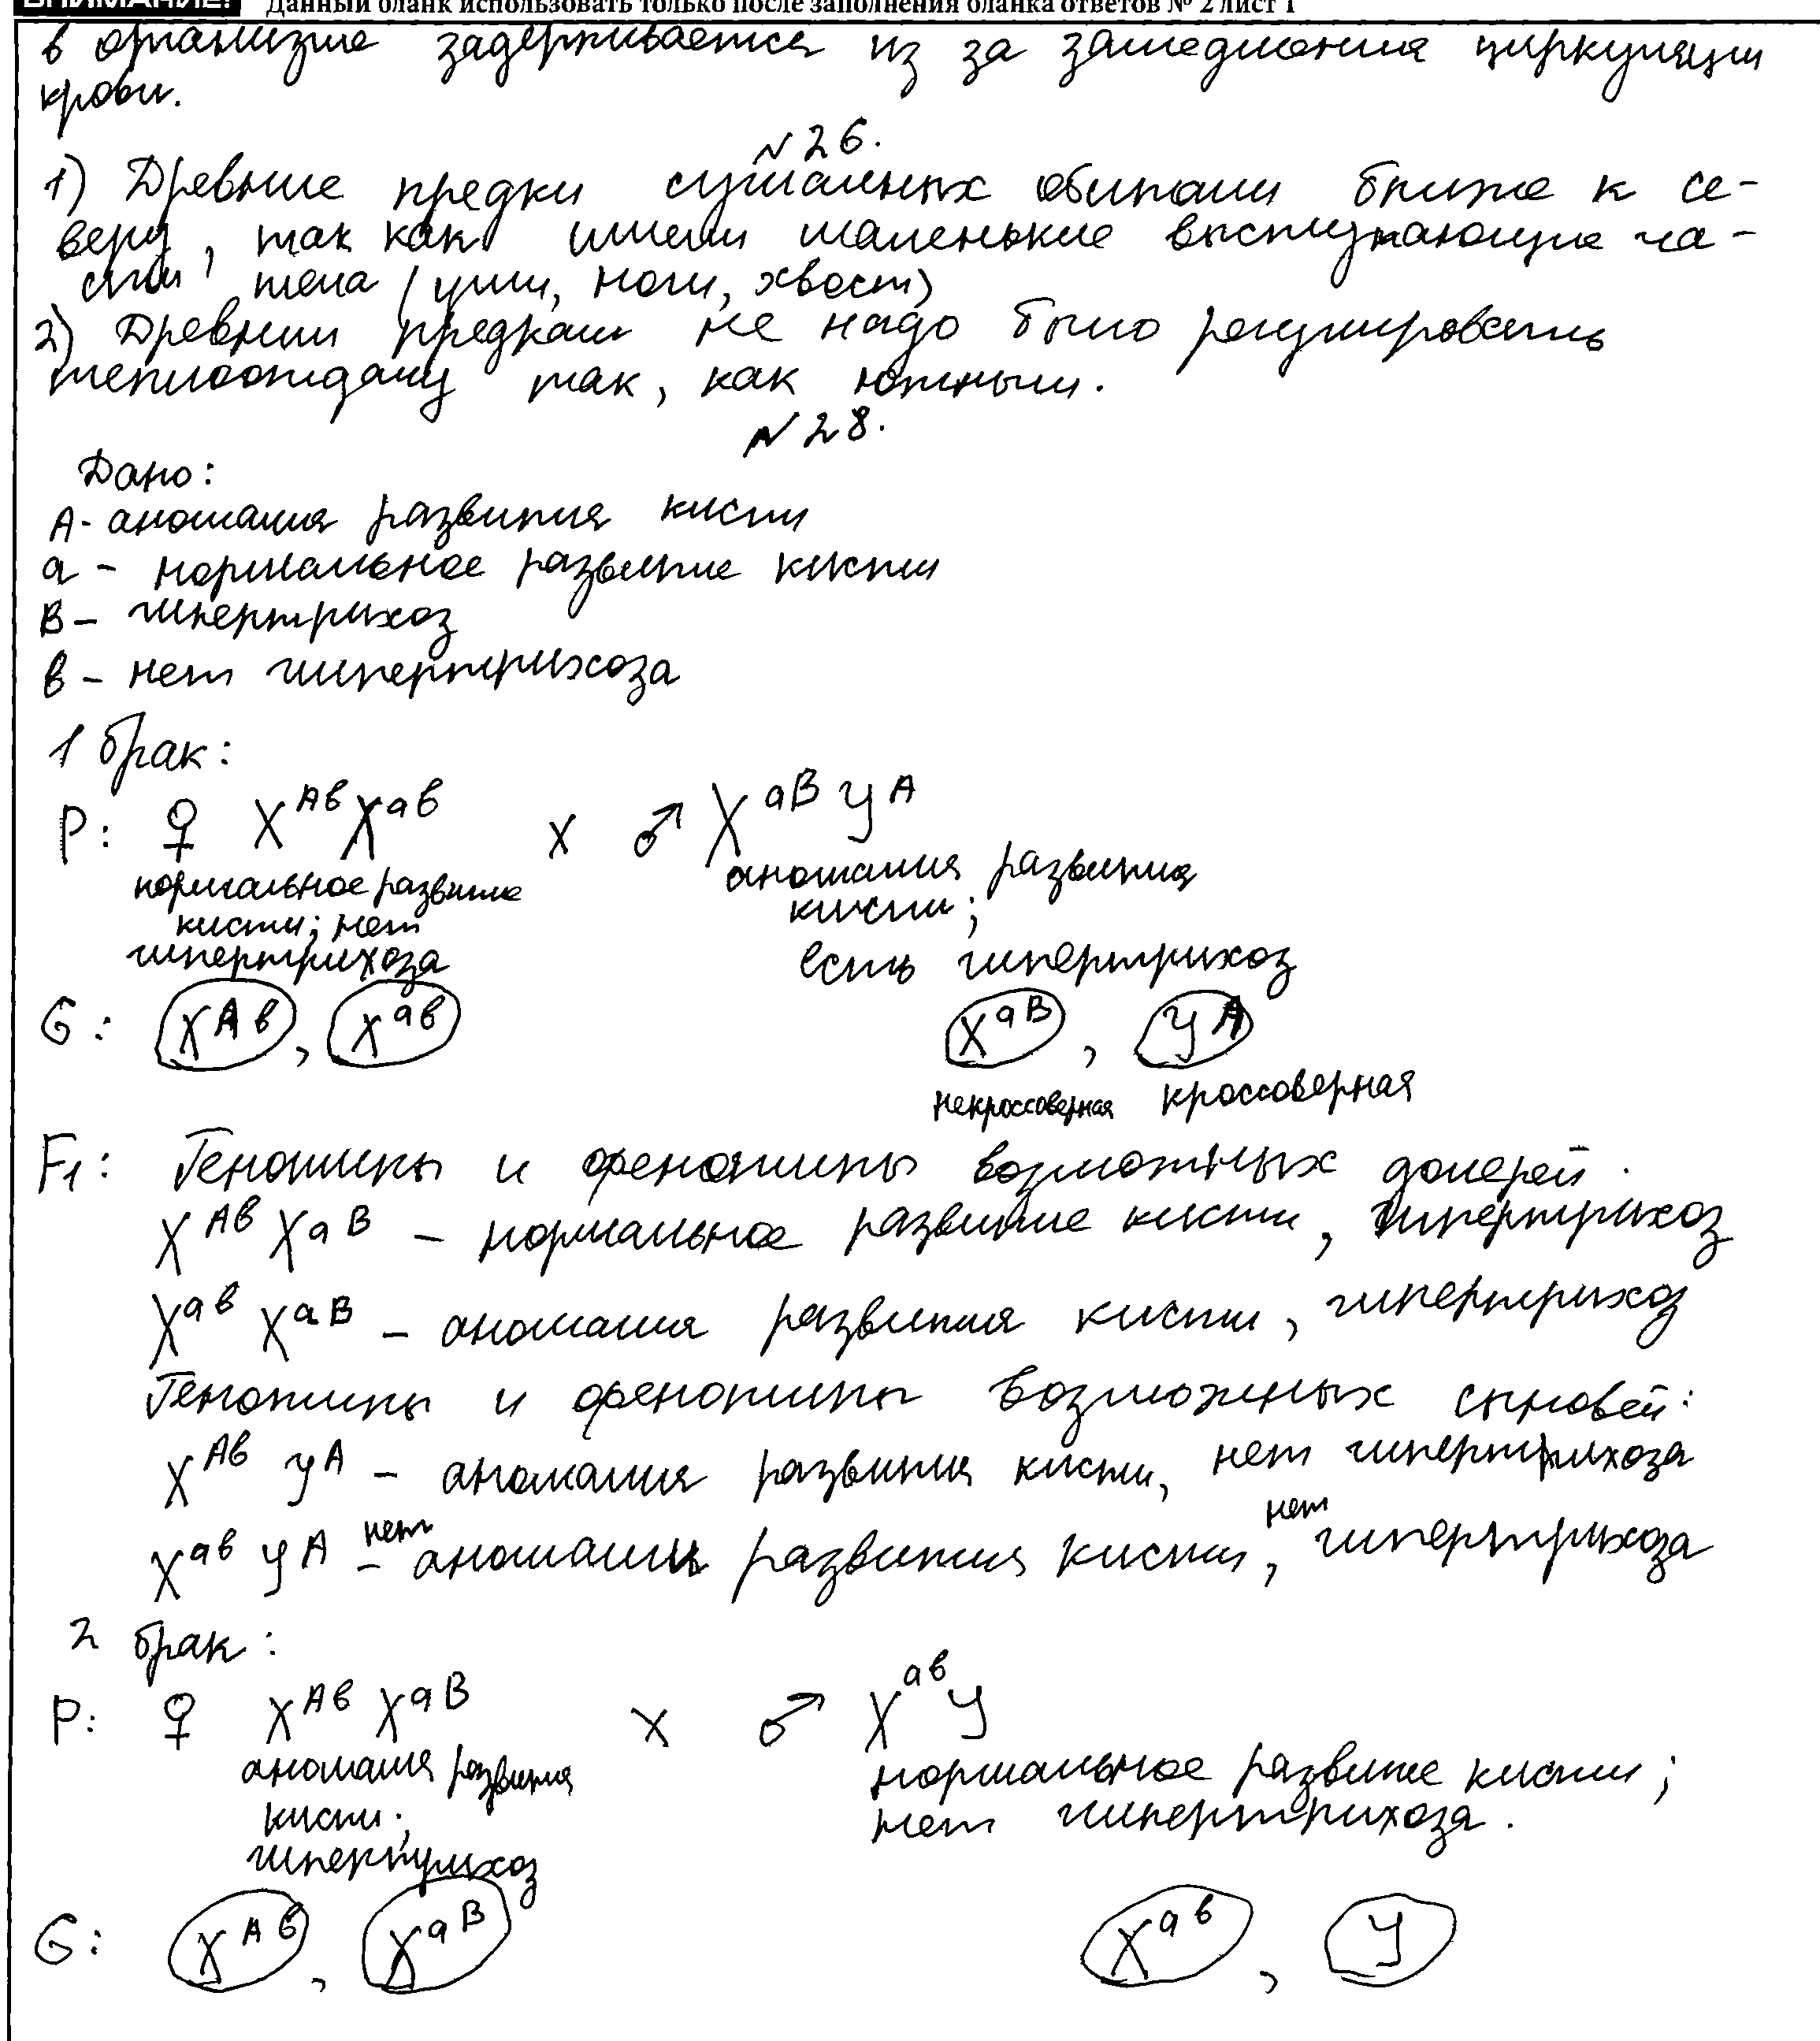 ВНИМАНИЕ! Данный бланк использовать только после заполнения бланка ответов № 2 лист 1
в организме задерживается из за замедления циркуляции
крови.
№ 26.
1) Древние предки сумчатых обитали ближе к се-
веру, так как имели маленькие выступающие ча-
сти тела (уши, ноги, хвост)
2) Древним предкам не надо было регулировать
теплоотдачу так, как южным.
№ 28.
Дано:
А - аномалия развития кисти
а - нормальное развитие кисти
В - гипертрихоз
в - нет гипертрихоза
1 брак:
Р: ♀ X^Aв X^aв x ♂ X^aB У^A
нормальное развитие кисти; нет гипертрихоза
аномалия развития кисти; есть гипертрихоз
G: X^Aв, X^aв X^aB, У^A
некроссоверная кроссоверная
F1: Генотипы и фенотипы возможных дочерей.
X^Aв X^aB – нормальное развитие кисти, гипертрихоз
X^aв X^aB – аномалия развития кисти, гипертрихоз
Генотипы и фенотипы возможных сыновей:
X^Aв У^A – аномалия развития кисти, нет гипертрихоза
X^aв У^A – нет аномалии развития кисти, нет гипертрихоза
2 брак:
Р: ♀ X^Aв X^aB x ♂ X^aв У
аномалия развития кисти; гипертрихоз
нормальное развитие кисти;
нет гипертрихоза.
G: X^Aв, X^aB X^aв, У